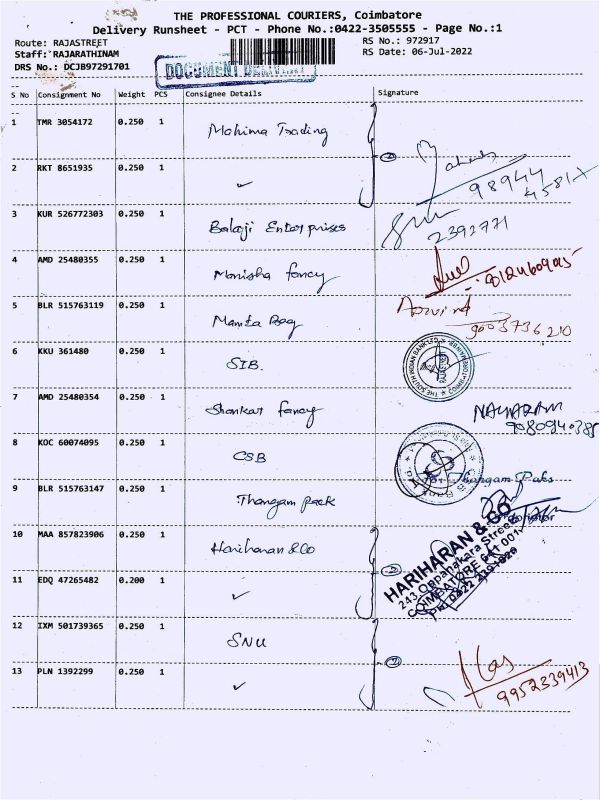 THE PROFESSIONAL COURIERS, Coimbatore
Delivery Runsheet - PCT - Phone No.:0422-3505555 - Page No.:1
Route: RAJASTREET
RS No.: 972917
Staff: RAJARATHINAM
RS Date: 06-Jul-2022
DRS No.: DCJB97291701
DOCUMENT
S No Consignment No Weight PCS Consignee Details Signature
1 TMR 3054172 0.250 1 Mahima Trading
2 RKT 8651935 0.250 1 ✓
98944
3 KUR 526772303 0.250 1 Balaji Enterprises
2392771
4 AMD 25480355 0.250 1 Manisha fancy
5 BLR 515763119 0.250 1 Mamta Bag
Arvind
9003736210
6 KKU 361480 0.250 1 SIB.
THE SOUTH INDIAN BANK LTD
7 AMD 25480354 0.250 1 Shankar fancy
NAGARAM
9080940385
8 KOC 60074095 0.250 1 CSB
9 BLR 515763147 0.250 1 Thangam pack
For Thangam Paks
10 MAA 857823906 0.250 1 Hariharan & Co
HARIHARAN & CO
243 Oppanakara Street
COIMBATORE 641 001.
11 EDQ 47265482 0.200 1 ✓
12 IXM 501739365 0.250 1 SNU
13 PLN 1392299 0.250 1 ✓
9952339413